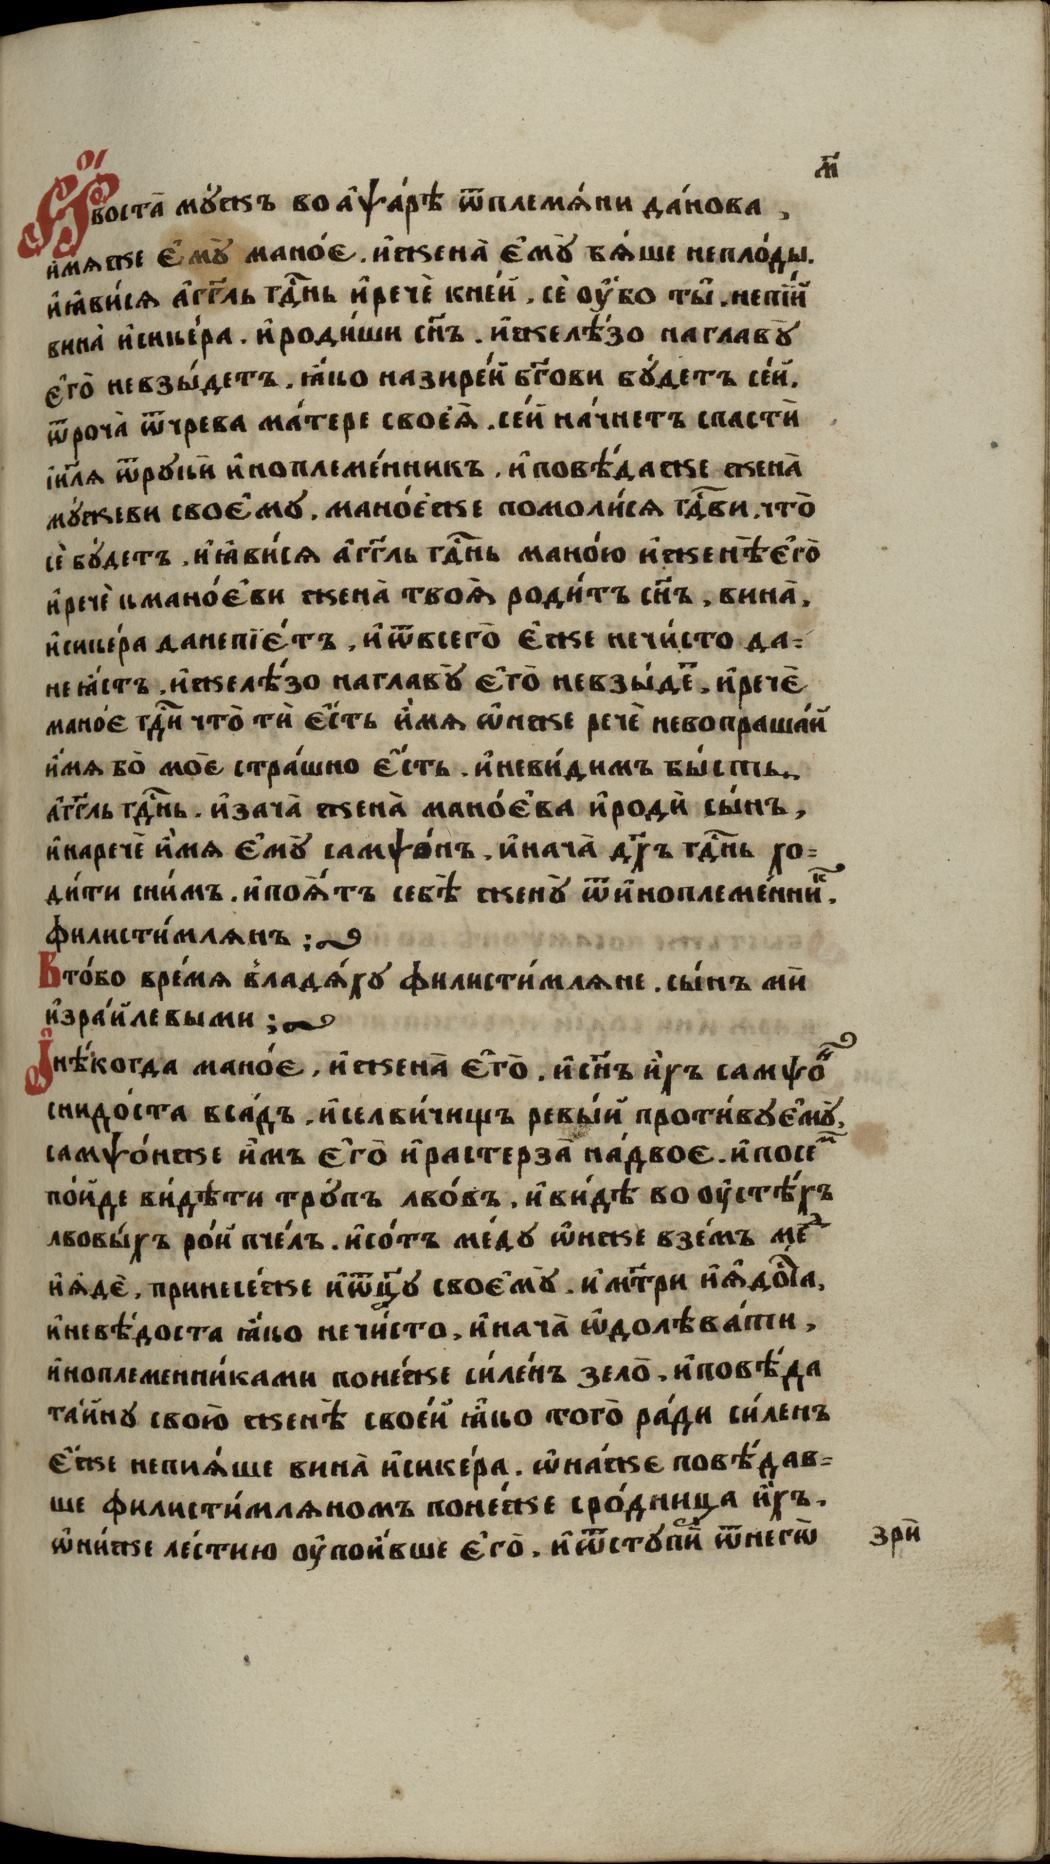 м҃
Ѿвоста̀ мꙋ́жъ во аѱа́рѣ ѿплемѧ́ни да́нова,
и҆́мѧже є҆мꙋ̀ мано́є. и҆жена̀ є҆мꙋ̀ бѧ́ше непло́ды.
и҆ꙗ҆ви́сѧ а҆́гг҃ль гд҇нь и҆речѐ кне́й, сѐ оу҆́бо ты̀. непі́й
вина̀ и҆сике́ра. и҆роди́ши сн҃ъ. и҆желѣ́зо наглавꙋ̀
є҆го̀ невзы́детъ, ꙗ҆́ко назире́й бг҃ови бꙋ́детъ се́й,
ѿроча̀ ѿчрева ма́тере своеѧ̀. се́й на́чнетъ спастѝ
і҆и҃лѧ ѿрꙋкѝ и҆ноплеме́нникъ. и҆повѣ́даже жена̀
мꙋ́жеви своє҆мꙋ. мано́єже помоли́сѧ гд҇ви, что̀
сѐ бꙋ́детъ. и҆ꙗ҆ви́сѧ а҆́гг҃ль гд҇нь мано́ю и҆женѣ̀ є҆го̀
и҆речѐ кмано́є҆ви жена̀ твоѧ̀ роди́тъ сн҃ъ, вина̀,
и҆сике́ра данепїе́тъ, и҆ѿвсего̀ є҆́же нечи́сто да=
неꙗ҆́стъ. и҆желѣ́зо наглавꙋ̀ є҆го̀ невзы́дет, и҆речѐ
мано́є гд҇и что̀ тѝ є҆́сть и҆́мѧ ѡ҆́нже речѐ невопраша́й
и҆́мѧ бо̀ моѐ стра́шно є҆́сть. и҆неви́димъ бы́сть.
а҆́гг҃ль гд҇нь. и҆зача̀ жена̀ мано́є҆ва и҆родѝ сы́нъ,
и҆наречѐ и҆́мѧ є҆мꙋ̀ самѱо́нъ. и҆нача̀ дх҃ъ гд҇нь хо=
дити сни́мъ. и҆поѧ́тъ себѣ̀ женꙋ̀ ѿи҆ноплеме́нник.
филисти́млѧнъ ;
Вто́бо вре́мѧ владѧ́хꙋ филисти́млѧне. сы́нъ мѝ
и҆зра́йлевыми ;
И҆нѣ́когда мано́є, и҆жена̀ є҆го̀. и҆сн҃ъ и҆́хъ самѱон
снидо́ста вса́дъ. и҆селви́чищъ ревы́й проти́вꙋє҆мꙋ̀,
самѱо́нже и҆́мъ є҆го̀ и҆растерза̀ на́двоє. и҆посем
по́йде ви́дѣти трꙋ́пъ лво́въ. и҆ви́дѣ во оу҆стѣ́хъ
лвовы́хъ ро́й пче́лъ. и҆со́тъ ме́дꙋ ѡ҆́нже взе́мъ мед
и҆ѧ҆дѐ, принесе́же и҆ѿц҃ꙋ своє҆мꙋ̀. и҆мт҃ри и҆ѧ҆до́ста,
и҆невѣ́доста ꙗ҆́ко нечи́сто, и҆нача̀ ѡ҆долѣва́ти,
и҆ноплеменни́ками поне́же си́ле́нъ зело̀. и҆повѣ́да
та́йнꙋ свою̀ женѣ̀ свое́й ꙗ҆́ко того̀ ра́ди си́ленъ
є҆́же непиѧ́ше вина̀ и҆сике́ра. ѡ҆на́же повѣ́дав=
ше филисти́млѧномъ поне́же сро́дница и҆́хъ.
ѡ҆ни́же ле́стию оу҆пои́вше є҆го̀. и҆ѿстꙋпѝ ѿнегѡ̀
зрѝ